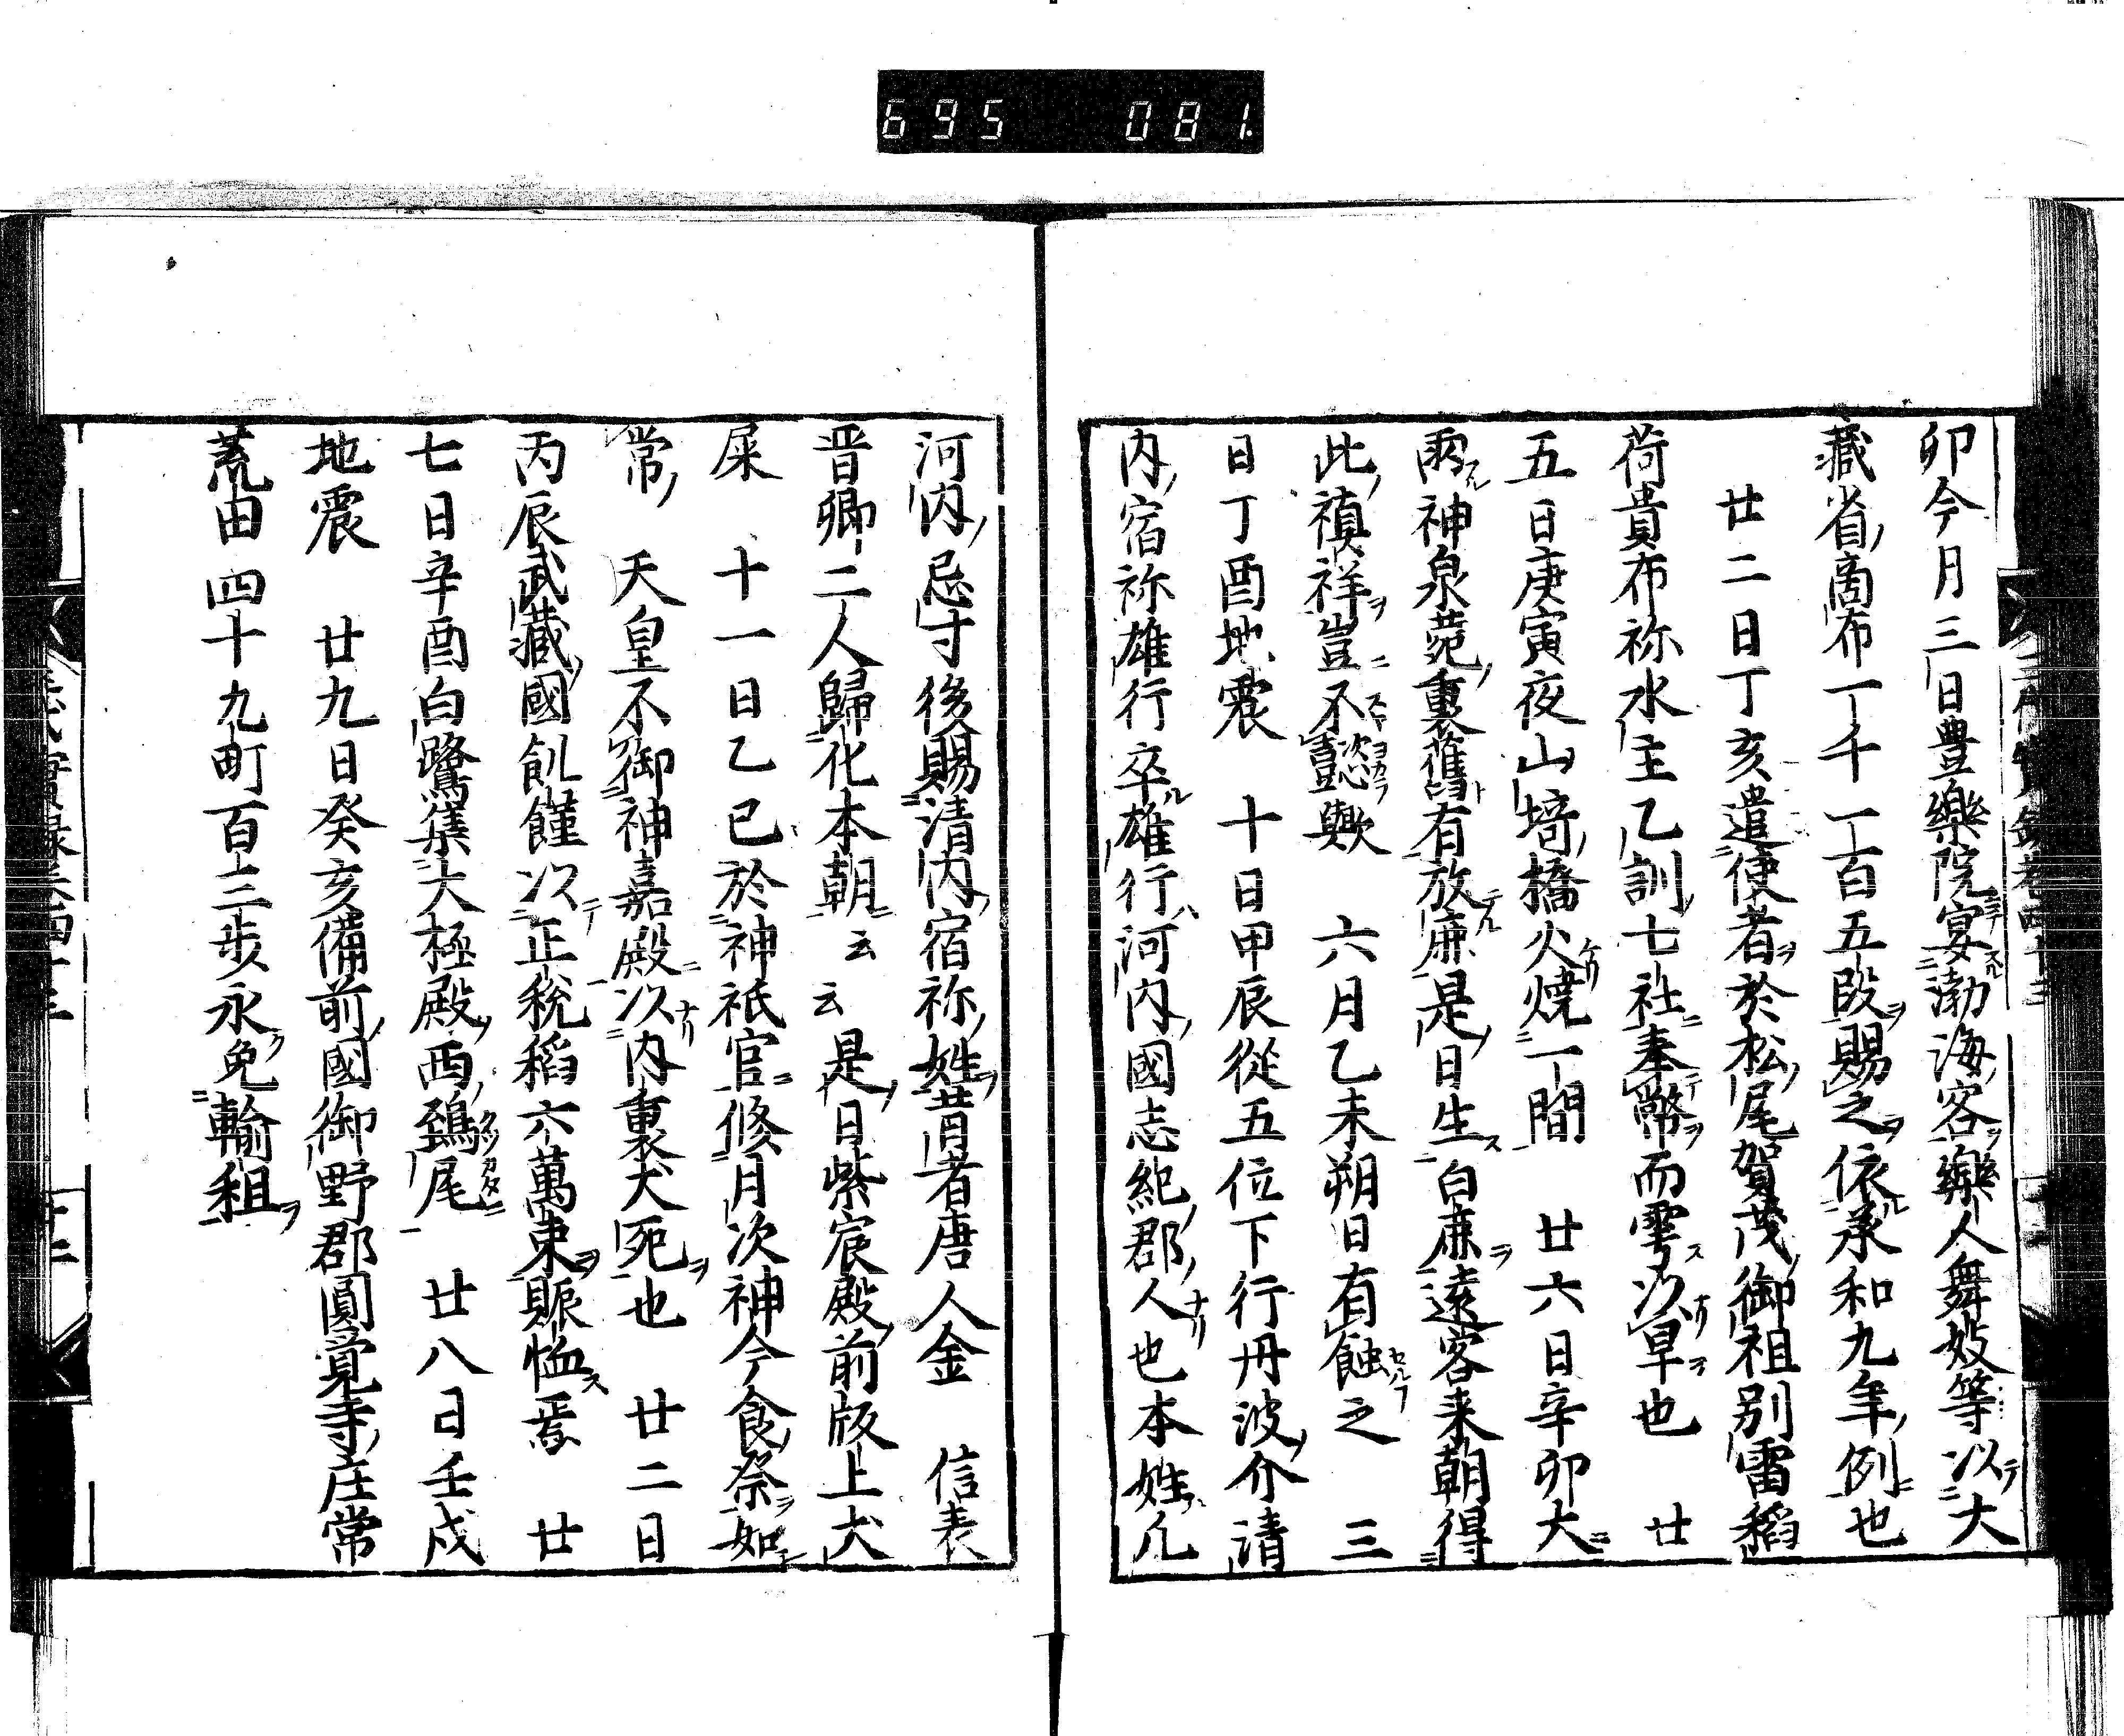 695 081.
卯今月三日豊樂院宴渤海客樂人舞妓等以大
藏省啇布一千一百五段賜之依承和九年例也
廿二日丁亥遣使者於松尾賀茂御祖別雷稲
荷貴布祢水主乙訓七社奉幣而雩以旱也 廿
五日庚寅夜山埼橋火燒一間 廿六日辛卯大
雨神泉苑裏舊有放鹿是日生白鹿遠客来朝得
此禎祥豈不懿歟 六月乙未朔日有蝕之 三
日丁酉地震 十日甲辰從五位下行丹波介清
内宿祢雄行卒雄行河内國志紀郡人也本姓凡
河内忌寸後賜清内宿祢姓昔者唐人金 信表
晋卿二人歸化本朝云云 是日紫宸殿前版上犬
屎 十一日乙巳於神祇官修月次神今食祭如
常 天皇不御神嘉殿以内裏犬死也 廿二日
丙辰武藏國飢饉以正税稲六萬束賑恤焉 廿
七日辛酉白鷺集大極殿西鵄尾 廿八日壬戌
地震 廿九日癸亥備前國御野郡圓覺寺庄常
荒田四十九町百三步永免輸租